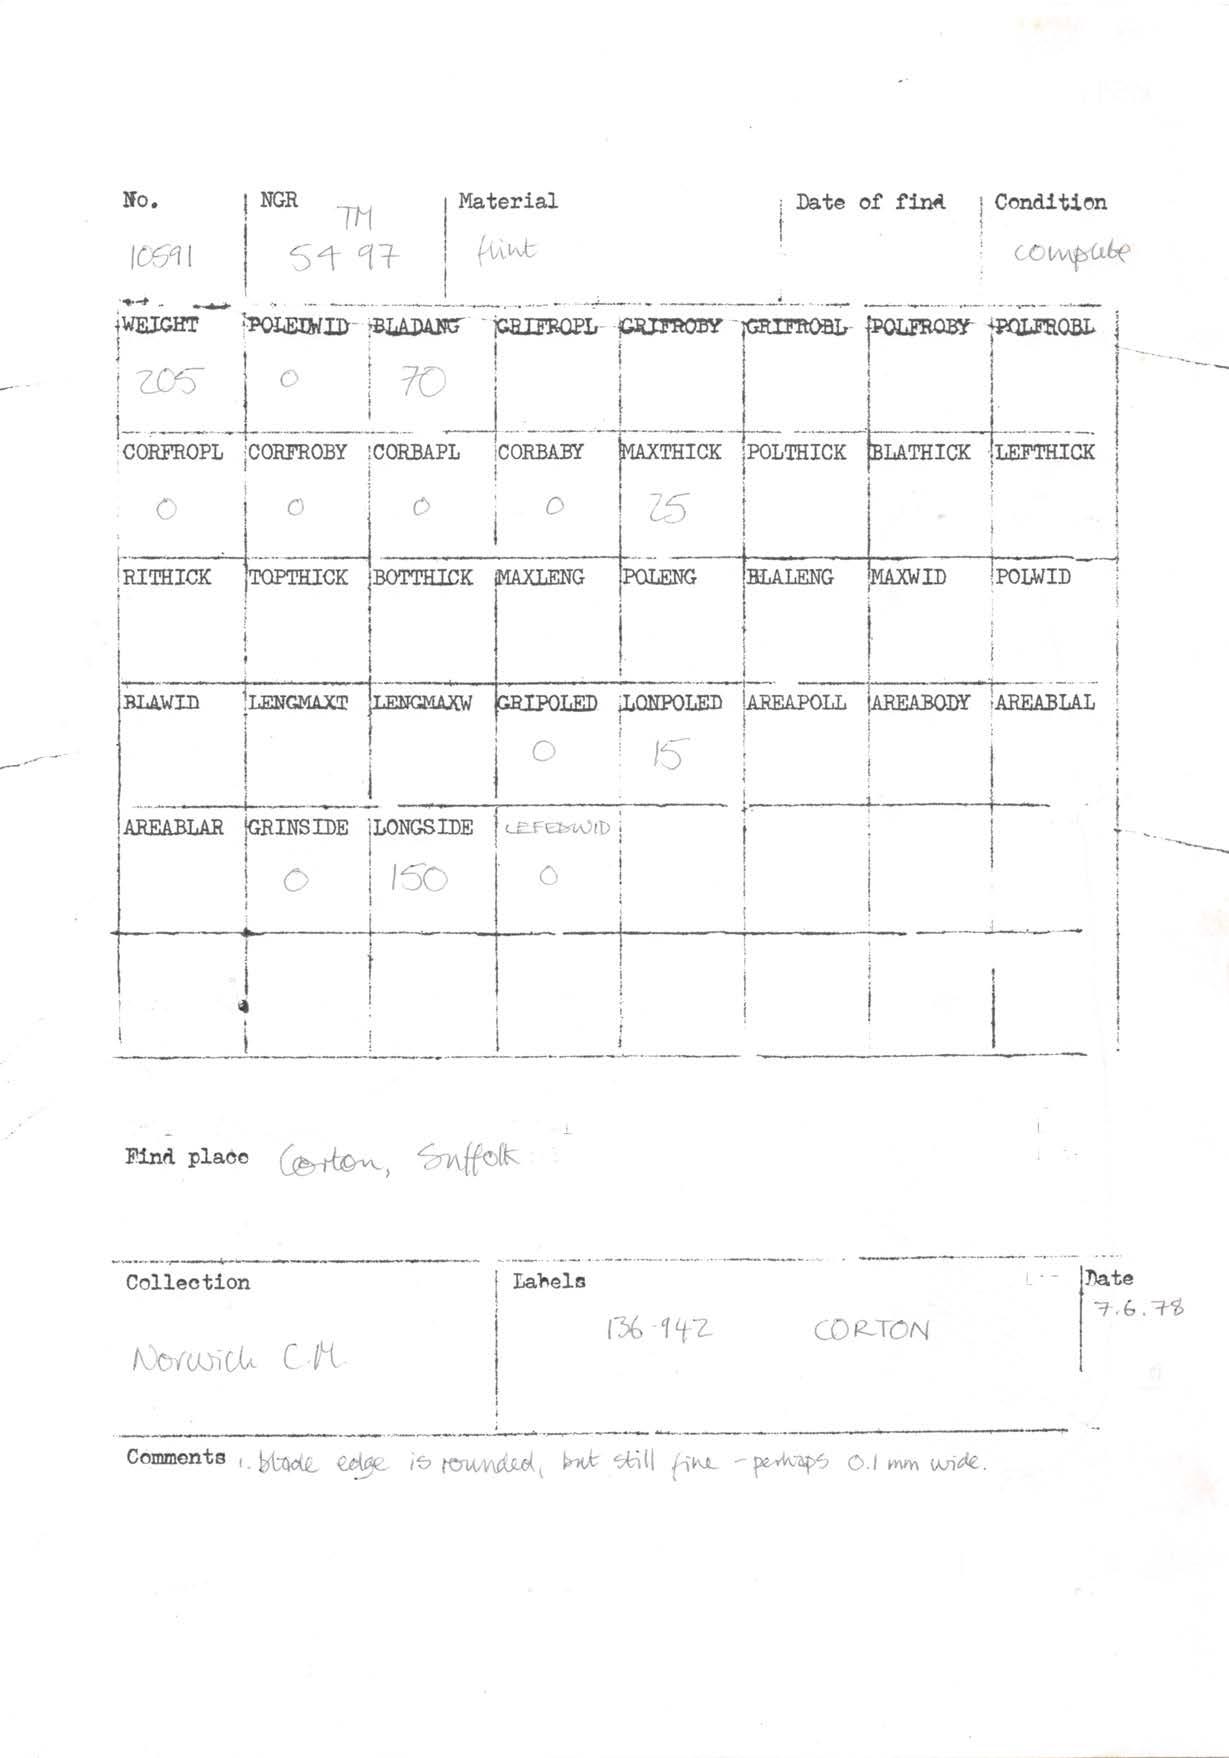 No. NGR Material Date of find Condition
TM
10591 54 97 flint complete
WEIGHT POLEDWID BLADANG GRIFROPL GRIFROBY GRIFROBL POLFROBY POLFROBL
205 0 70
CORFROPL CORFROBY CORBAPL CORBABY MAXTHICK POLTHICK BLATHICK LEFTHICK
0 0 0 0 25
RITHICK TOPTHICK BOTTHICK MAXLENG POLENG BLALENG MAXWID POLWID
BLAWID LENGMAXT LENGMAXW GRIPOLED LONPOLED AREAPOLL AREABODY AREABLAL
0 15
AREABLAR GRINSIDE LONGSIDE LEFEDWID
0 150 0
Find place Corton, Suffolk
Collection Labels Date
7.6.78
136-942 CORTON
Norwich C.M.
Comments 1. blade edge is rounded, but still fine - perhaps 0.1 mm wide.